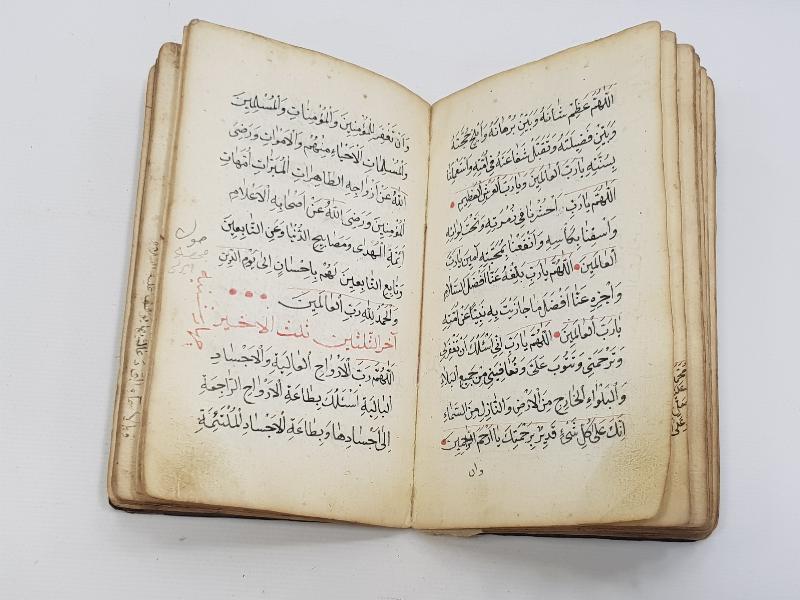 اللهم عظم شانه وبين برهانه وابلج حجته
وبين فضيلته وتقبل شفاعته في امته واستعملنا
بسنته يارب العالمين ويارب العرش العظيم
اللهم يارب احشرنا في زمرته وتحت لوائه
واسقنا بكاسه وانفعنا بمحبته امين يارب
العالمين اللهم يارب بلغه عنا افضل السلام
واجزه عنا افضل ما جازيت به نبيا عن امته
يارب العالمين اللهم يارب اني اسئلك ان تغفرلي
وترحمني وتتوب علي وتعافيني من جميع البلاء
والبلواء الخارج من الارض والنازل من السماء
انك على كل شئ قدير برحمتك يا ارحم الراحمين
وان
وان تغفر للمؤمنين والمؤمنات والمسلمين
والمسلمات الاحياء منهم والاموات ورضى
الله عن ازواجه الطاهرات المبرات امهات
المؤمنين ورضى الله عن اصحابه الاعلام
ائمة الهدى ومصابيح الدنيا وعن التابعين
وتابع التابعين لهم باحسان الى يوم الدين
والحمد لله رب العالمين
اخر الثلثين ثلث الاخير
اللهم رب الارواح العالية والاجساد
البالية اسئلك بطاعة الارواح الراجعة
الى اجسادها وبطاعة الاجساد الملتئمة